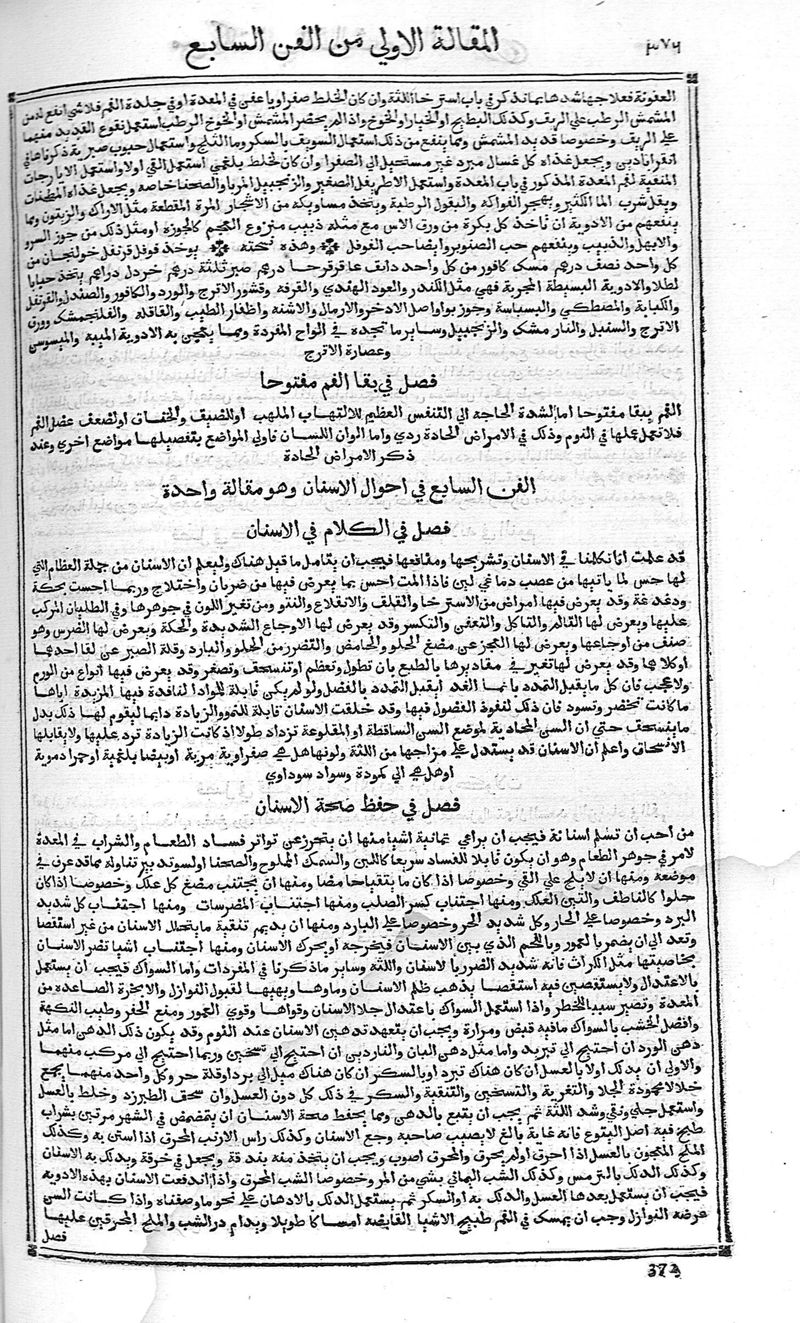 المقالة الاولي من الفن السابع
٣٧٦
العفونة فعلاجها شدها بما نذكر في باب استرخا اللثة وان كان الخلط صفراويا عفن في المعدة او في جلدة الفم فلا شي انفع له من
المشمش الرطب علي الريق وكذلك البطيخ او الخيار او الخوخ واذا لم يحضر المشمش او الخوخ الرطب استعمل نقوع القديد منهما
علي الريق وخصوصا قديد المشمش ومما ينفع من ذلك استعمال السويق بالسكر وما الثلج واستعمال حبوب صبرية ذكرناها في
اقراباذين ويجعل غذاه كل غسال مبرد غير مستحيل الي الصفرا وان كان لخلط بلغمي استعمل القي اولا واستعمل الايارجات
المنقية لفم المعدة المذكور في باب المعدة واستعمل الاطريفل الصغير والزنجبيل المربا والصحنا خاصه ويجعل غذاه المطجنات
ويقل شرب الما الكثير ويهجر الفواكه والبقول الرطبة ويتخذ مساويكه من الاشجار المرة المقطعة مثل الاراك والزيتون ومما
ينفعهم من الادوية ان ناخذ كل بكرة من ورق الاس مع مثله ذبيب منزوع العجم كالجوزة او مثل ذلك من جوز السرو
والابهل والذبيب وينفعهم حب الصنوبر وايضا حب الفوفل وهذه نسخته يوخذ فوفل قرنفل خولنجان من
كل واحد نصف درهم مسك كافور من كل واحد دانف عاقرقرحا درهم صبر ثلثة درهم خردل دراهم يتخذ حبابا
لطلا والادوية البسيطة المجربة فهي مثل الكندر والعود الهندي والقرفه وقشور الاترج والورد والكافور والصندل والقرنفل
والكبابة والمصطكي والبسباسة وجوز بوا واصل الاذخر والارمال والاشنه واظفار الطيب والقاقله والفلنجمشك وورق
الاترج والسنبل والنار مشك والزنجبيل وساير ما تجده في الواح المفردة ومما يعجن به الادوية الميبه والميسوسن
وعصارة الاترج
فصل في بقا الفم مفتوحا
الفم يبقا مفتوحا اما لشدة الحاجه الي التنفس العظيم للالتهاب الملهب او للضيف والخناق او لضعف عضل الفم
فلا تعمل عملها في النوم وذلك في الامراض الحادة ردي واما الوان اللسان فاولي المواضع بتفصيلها مواضع اخري وعند
ذكر الامراض الحادة
الفن السابع في احوال الاسنان وهو مقالة واحدة
فصل في الكلام في الاسنان
قد علمت انا تكلمنا في الاسنان وتشريحها ومنافعها فيجب ان يتامل ما قيل هناك وليعلم ان الاسنان من جملة العظام التي
لها حس لما ياتيها من عصب دماغي لين فاذا المت احس بما يعرض فيها من ضربان واختلاج وربما احست بحكة
ودغدغة وقد يعرض فيها امراض من الاسترخا والقلف والانقلاع والنتو ومن تغير اللون في جوهرها وفي الطليان المركب
عليها ويعرض لها التالم والتاكل والتعفن والتكسر وقد يعرض لها الاوجاع الشديدة والحكة ويعرض لها الضرس وهو
صنف من اوجاعها ويعرض لها العجز عن مضغ الحلو والحامض والتضرر من الحلو والبارد وقلة الصبر عن لقا احدهما
او كلاهما وقد يعرض لها تغير في مقاديرها بالطبع بان تطول وتعظم او تنسحف وتصغر وقد يعرض فيها انواع من الورم
ولا عجب فان كل ما يقبل التمدد بانما الغد ايقبل التمدد بالفضل ولو لم يكن قابلة للمواد لنافذة فيها المزيدة اياها
ما كانت تخضر وتسود فان ذلك لنفوذ الفضول فيها وقد خلقت الاسنان قابلة للنمو والزيادة دايما ليقوم لها ذلك بدل
ما ينسحف حتي ان السن المحاذية لموضع السن الساقطة او المقلوعة تزداد طولا اذ كانت الزيادة ترد عليها ولا يقابلها
الانسحاق واعلم ان الاسنان قد يستدل علي مزاجها من اللثة ولونها هل هي صفراوية مرية او بيضا بلغمية او حمرا دموية
او هل هي الي كمودة وسواد سوداوي
فصل في حفظ صحة الاسنان
من احب ان تسلم اسنانة فيجب ان يراعي ثمانية اشيا منها ان يتحرز عن تواتر فساد الطعام والشراب في المعدة
لامر في جوهر الطعام وهو ان يكون قابلا للفساد سريعا كاللبن والسمك المملوح والصحنا او لسو تدبير تناوله مما قد عرف في
موضعه ومنها ان لا يلح علي القي وخصوصا اذا كان ما يتقياحا مضا ومنها ان يجتنب مضغ كل علك وخصوصا اذا كان
حلوا كالناطف والتين العلك ومنها اجتناب كسر الصلب ومنها اجتناب المضرسات ومنها اجتناب كل شديد
البرد وخصوصا علي الحار وكل شديد الحر وخصوصا علي البارد ومنها ان يديم تنقية ما يتخلل الاسنان من غير استقصا
وتعد الي ان يضمر بالعمور وباللحم الذي بين الاسنان فيخرجه او يحرك الاسنان ومنها اجتناب اشيا تضر الاسنان
بخاصيتها مثل الكراث فانه شديد الضرر بالاسنان واللثة وساير ما ذكرنا في المفردات واما السواك فيجب ان يستعمل
بالاعتدال ولا يستقصي فيه استقصا يذهب ظلم الاسنان وماوها ويهيها لقبول النوازل والابخرة الصاعدة من
المعدة وتصير سببا للخطر واذا استعمل السواك باعتدال جلا الاسنان وقواها وقوي العمور ومنع الحفر وطيب النكهة
وافضل الخشب بالسواك ما فيه قبض ومرارة ويجب ان يتعهد تدهين الاسنان عند النوم وقد يكون ذلك الدهن اما مثل
دهن الورد ان احتيج الي تبريد واما مثل دهن البان والناردين ان احتيج الي تسخين وربما احتيج الي مركب منهما
والاولي ان يدلك اولا بالعسل ان كان هناك تبرد او بالسكر ان كان هناك ميل الي برد او قلة حر وكل واحد منهما يجمع
خلالا محمودة الجلا والتغرية والتسخين والتنقية والسكر في ذلك كل دون العسل وان سحق الطبرزد وخلط بالعسل
واستعمل جلي ونقي وشد اللثة ثم يجب ان يتبع بالدهن ومما يحفظ صحة الاسنان ان يتمضمض في الشهر مرتين بشراب
طبخ فيه اصل اليتوع فانه غاية بالغ لا يصيب صاحبه وجع الاسنان وكذلك راس الارنب المحرق اذا استن به وكذلك
الملح المعجون بالعسل اذا احرق او لم يحرق والمحرق اصوب ويجب ان يتخذ منه بندقة ويجعل في خرقة ويدلك به الاسنان
وكذلك الدلك بالترمس وكذلك الشب اليماني بشي من المر وخصوصا الشب المحرق واذا اندفعت الاسنان بهذه الادويه
فيجب ان يستعمل بعدها العسل والدلك به او السكر ثم يستعمل الدلك بالادهان علي نحو ما وصفناه واذا كانت السن
عرضه النوازل وجب ان يمسك في الفم طبيخ الاشيا القابضه امساكا طويلا ويدام در الشب والملح المحرقين عليها
فصل
373